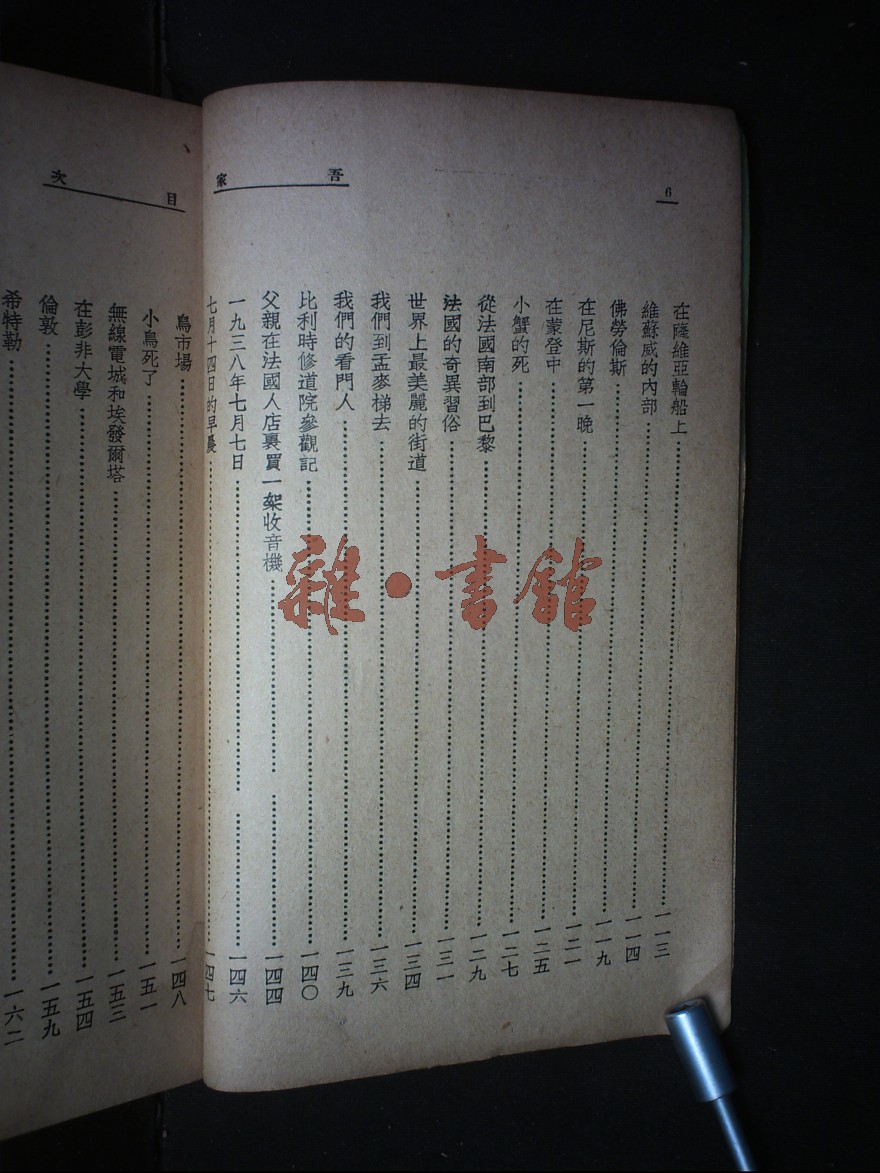 6
吾家
在薩維亞輪船上……一一三
維蘇威的內部……一一四
佛勞倫斯……一一九
在尼斯的第一晚……一二一
在蒙登中……一二五
小蟹的死……一二七
從法國南部到巴黎……一二九
法國的奇異習俗……一三一
世界上最美麗的街道……一三四
我們到孟麥梯去……一三六
我們的看門人……一三九
比利時修道院參觀記……一四〇
父親在法國人店裏買一架收音機……一四四
一九三八年七月七日……一四六
七月十四日的早晨……一四七
目次
鳥市場……一四八
小鳥死了……一五一
無線電城和埃發爾塔……一五三
在彭非大學……一五四
倫敦……一五九
希特勒……一六二
雜·書館